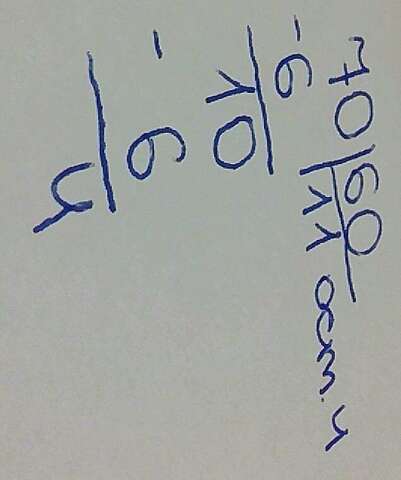 70|60
-6 11 ост. 4
10
-6
4